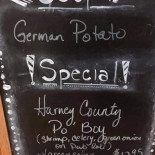 German Potato
Special!
Harney County
Po Boy
(shrimp, celery, green onion
on Pub Roll)